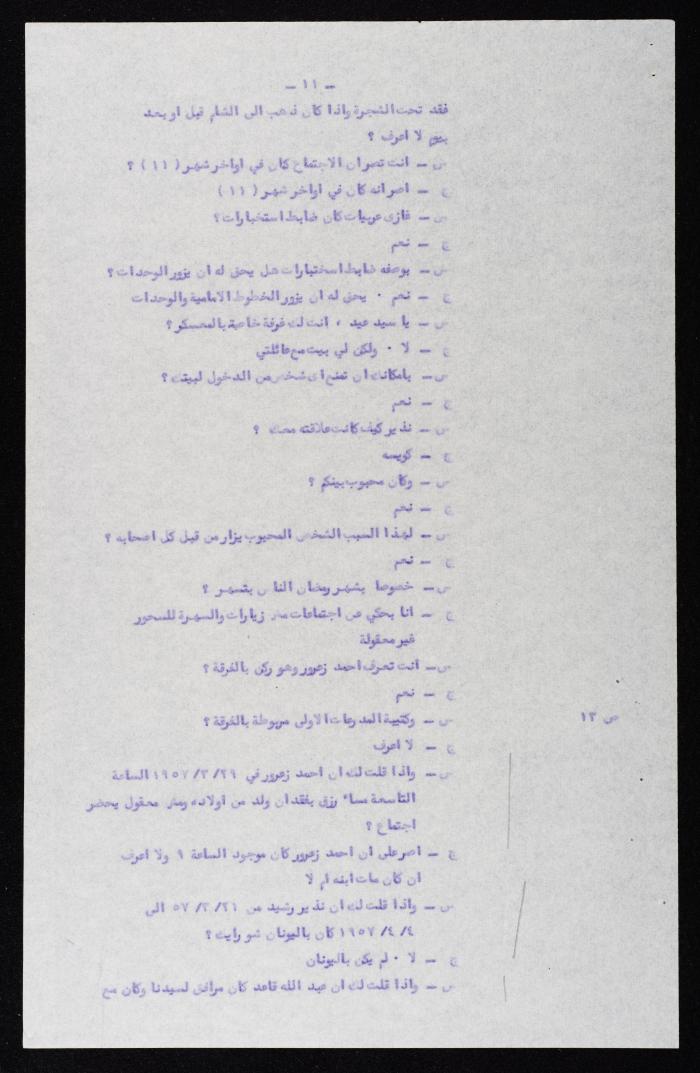 - ١١ -
فقد تحت الشجرة واذا كان ذهب الى الشام قبل او بعد
بيوم لا اعرف ؟
س - انت تصر ان الاجتماع كان في اواخر شهر ( ١١ ) ؟
ج - اصر انه كان في اواخر شهر ( ١١ )
س - غازى عربيات كان ضابط استخبارات ؟
ج - نعم
س - بوصفه ضابط استخبارات هل يحق له ان يزور الوحدات ؟
ج - نعم ٠ يحق له ان يزور الخطوط الامامية والوحدات
س - يا سيد عيد ، انت لك غرفة خاصة بالمعسكر ؟
ج - لا ٠ ولكن لي بيت مع عائلتي
س - بامكانك ان تمنع اى شخص من الدخول لبيتك ؟
ج - نعم
س - نذير كيف كانت علاقته معك ؟
ج - كويسه
س - وكان محبوب بينكم ؟
ج - نعم
س - لهذا السبب الشخص المحبوب يزار من قبل كل اصحابه ؟
ج - نعم
س - خصوصا بشهر رمضان الناس بتسهر ؟
ج - انا بحكي عن اجتماعات مش زيارات والسهرة للسحور
غير معقولة
س - انت تعرف احمد زعرور وهو ركن بالفرقة ؟
ج - نعم
ص ١٣
س - وكتيبة المدرعات الاولى مربوطة بالفرقة ؟
ج - لا اعرف
س - واذا قلت لك ان احمد زعرور في ٢٩/ ٣/ ١٩٥٧ الساعة
التاسعة مساء رزق بفقدان ولد من اولاده ومش معقول يحضر
اجتماع ؟
ج - اصر على ان احمد زعرور كان موجود الساعة ٩ ولا اعرف
ان كان مات ابنه ام لا
س - واذا قلت لك ان نذير رشيد من ٢١/ ٣/ ٥٧ الى
٤/ ٤/ ١٩٥٧ كان باليونان شو رايك ؟
ج - لا ٠ لم يكن باليونان
س - واذا قلت لك ان عبد الله قاعد كان مرافق لسيدنا وكان مع